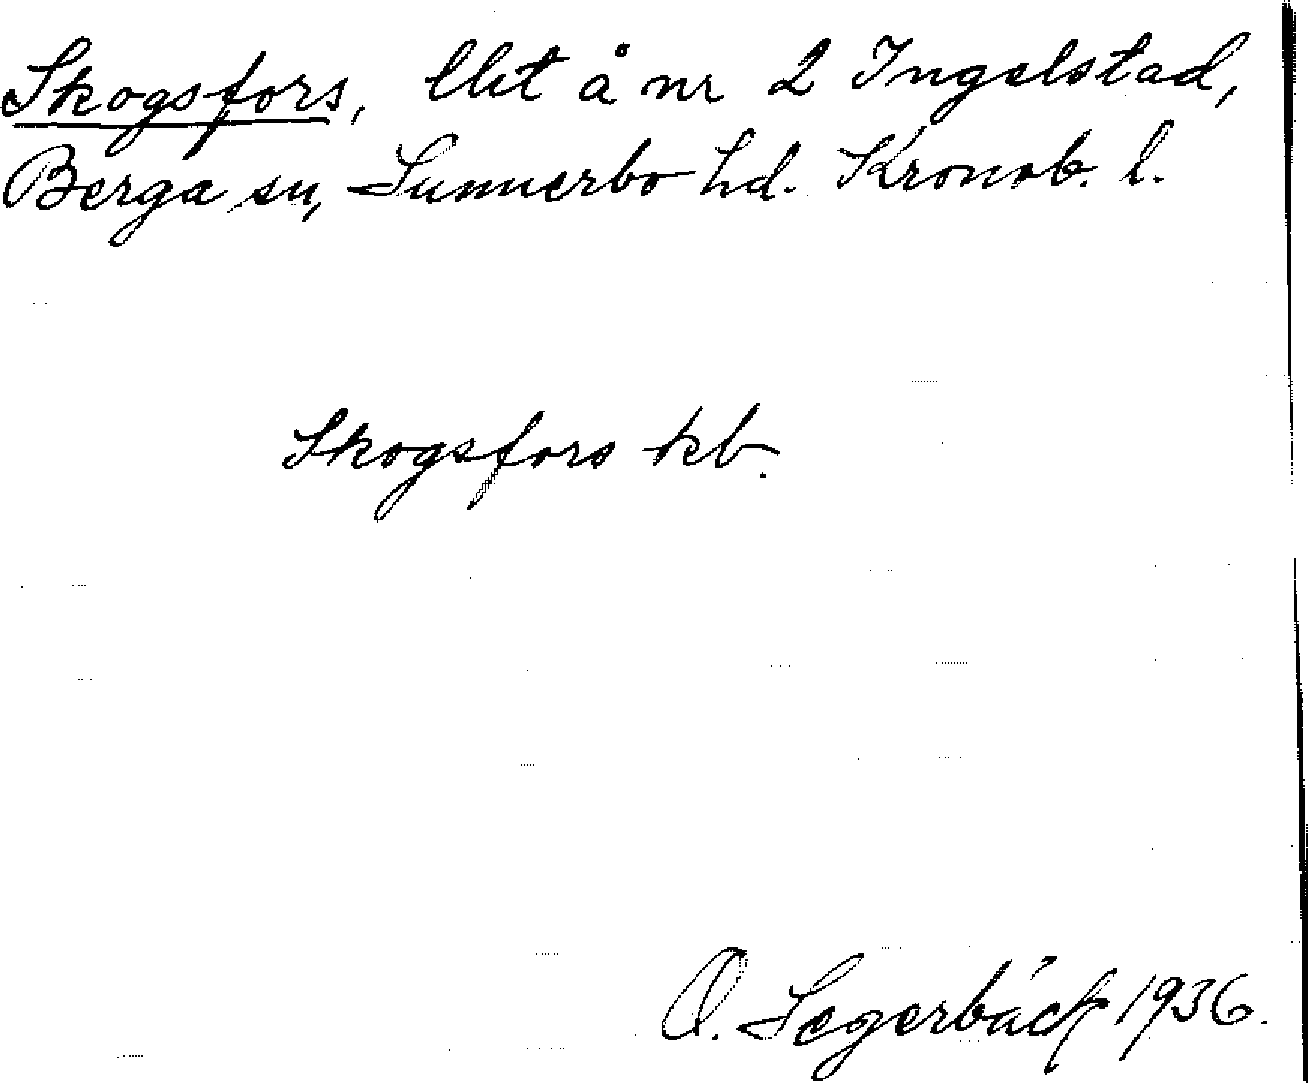 Skogsfors, lht å nr 2 Ingelstad,
Berga sn, Sunnerbo hd. Kronob. l.
Skogsfors kb.
O. Segerbäck 1936.